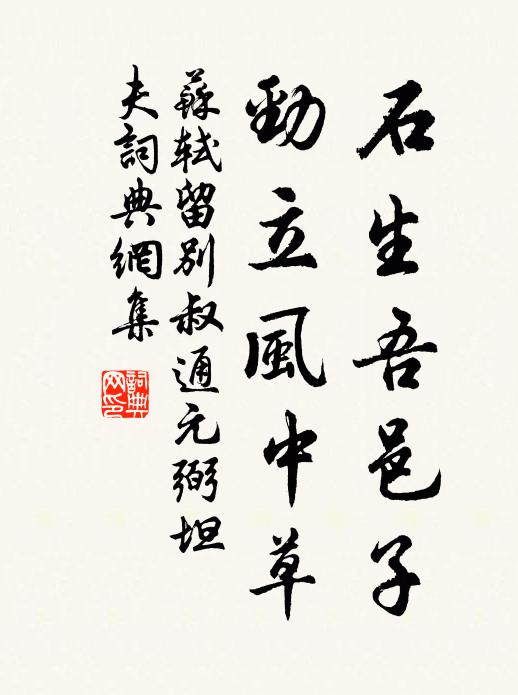 石生吾邑子
勁立風中草
蘇軾留别叔通元弼坦
夫詞典網集
詞典
网印